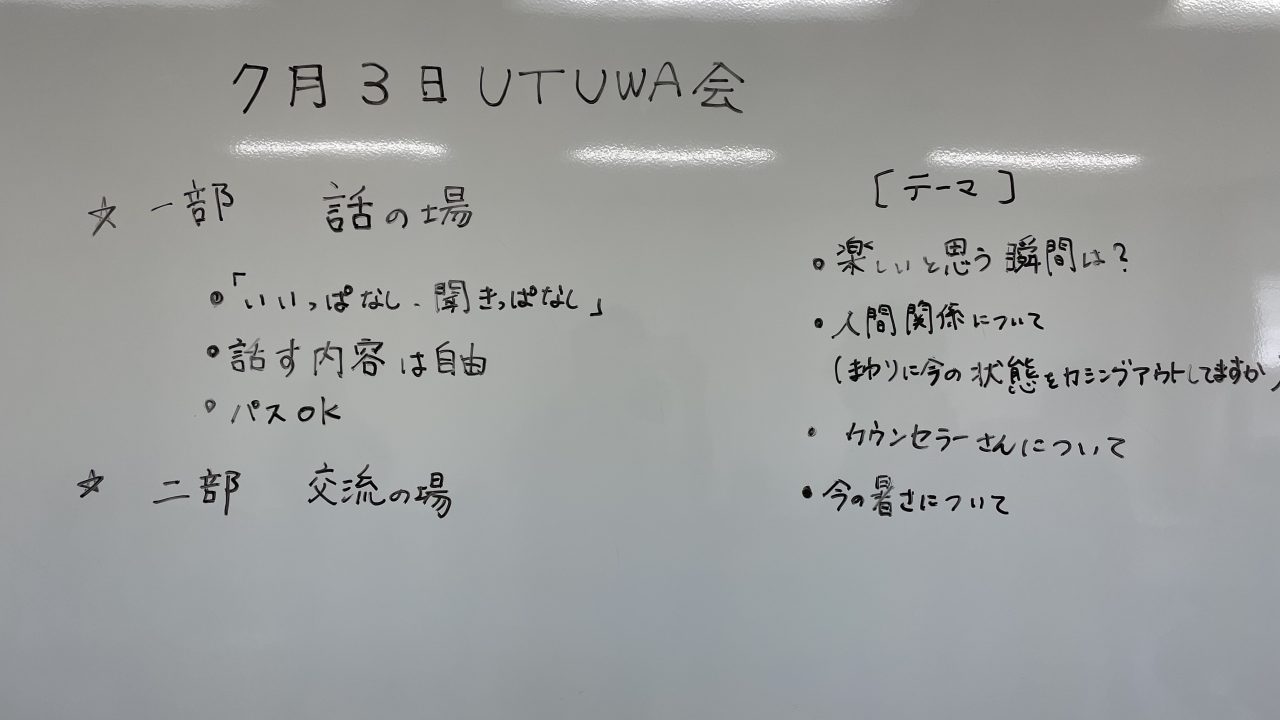 7月3日UTUWA会
☆ 一部 話の場
・「いいっぱなし・聞きっぱなし」
・話す内容は自由
・パスOK
☆ 二部 交流の場
[テーマ]
・楽しいと思う瞬間は?
・人間関係について
(まわりに今の状態をカミングアウトしてますか)
・カウンセラーさんについて
・今の暑さについて